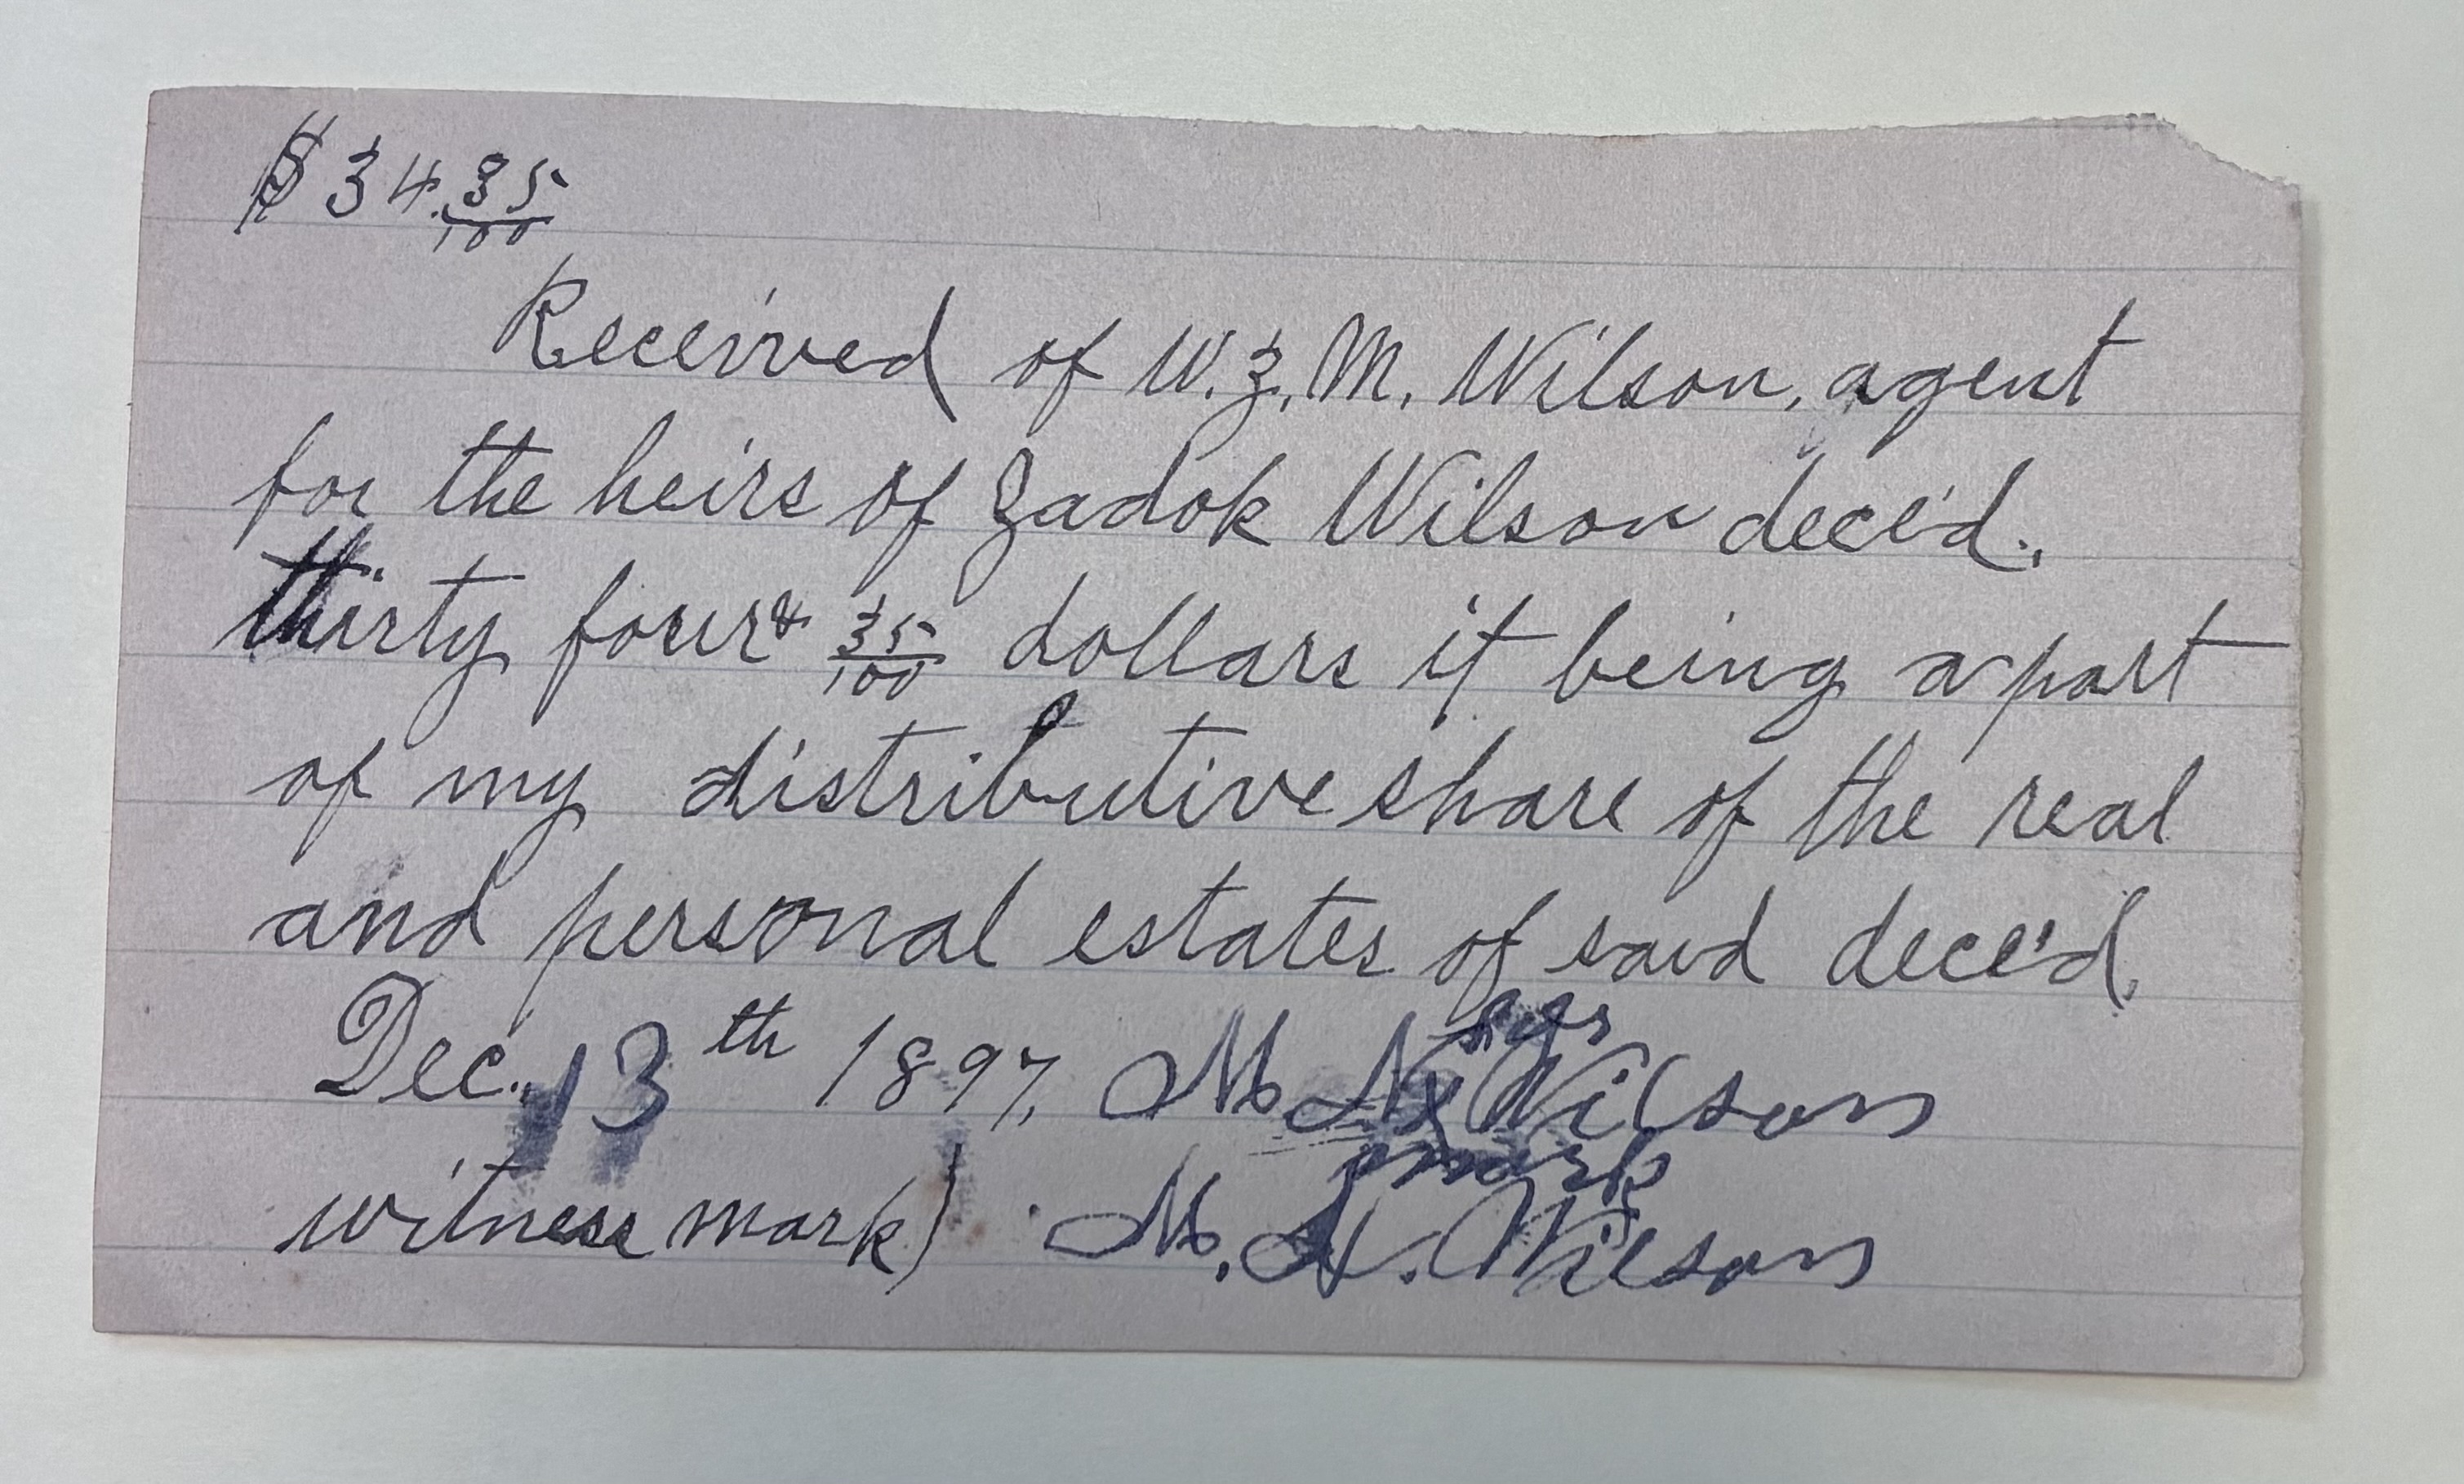 $34.35/100
Received of W. Z. M. Wilson, agent
for the heirs of Zadok Wilson dece'd.,
thirty four & 35/100 dollars it being a part
of my distributive share of the real
and personal estates of said dece'd.
Dec. 13th 1897, M N x Wilson
mark
witness mark) M. N. Wilson